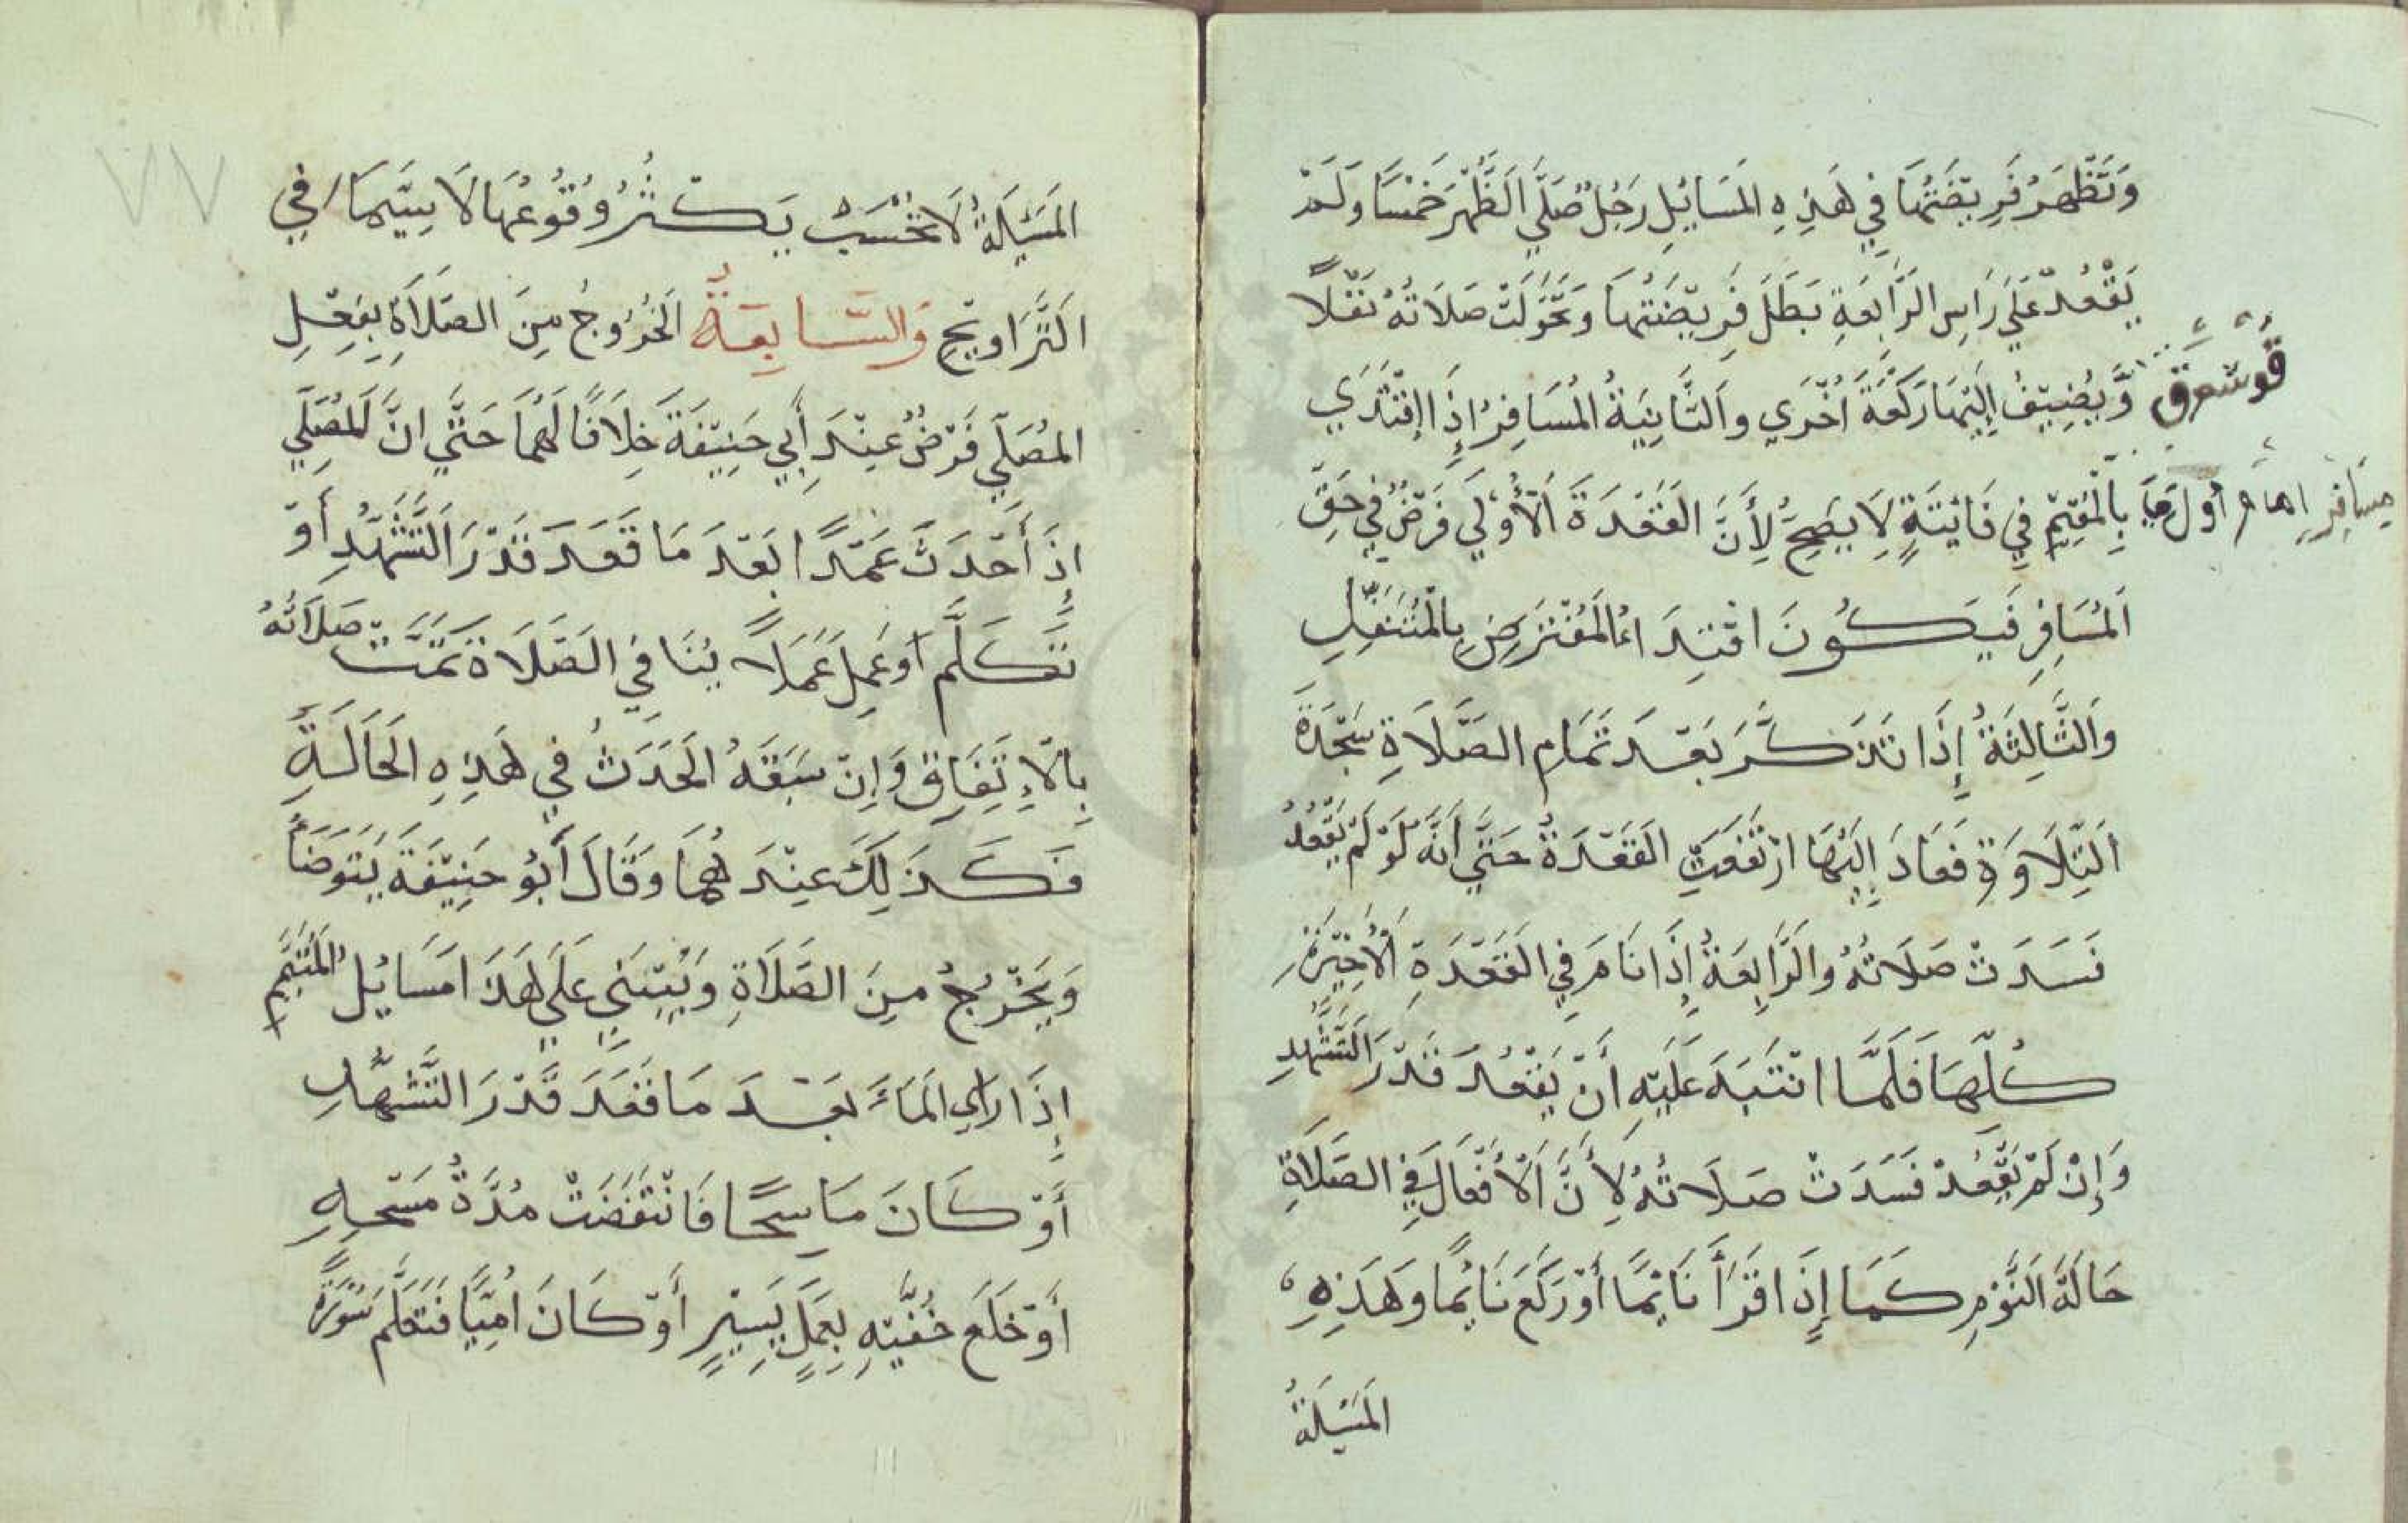 وَتَظْهَرُ فَرِيضَتُهَا فِي هَذِهِ المَسَائِلِ رَجُلٌ صَلَّي الظُّهْرَ خَمْسًا وَلَمْ
يَقْعُدْ عَلَي رَاسِ الرَّابِعَةِ بَطَلَ فَرِيضَتُهَا وَتَحَوَّلَتْ صَلَاتُهُ نَفْلًا
وَيُضِيْفُ إِلَيْهَا رَكْعَةً أُخْرَي وَالثَّانِيَةُ المُسَافِرُ إِذَا اقْتَدَي
بِالْمُقِيْمِ فِي فَائِتَةٍ لَا يَصِحُّ لِأَنَّ القَعْدَةَ الأُوْلَي فَرْضٌ فِي حَقِّ
المُسَافِرِ فَيَكُونَ اقْتِدَاءُ المُفْتَرِضِ بِالْمُتَنَفِّلِ
وَالثَّالِثَةُ إِذَا تَذَكَّرَ بَعْدَ تَمَامِ الصَّلَاةِ سَجْدَةَ
التِّلَاوَةِ فَعَادَ إِلَيْهَا ارْتَفَعَتِ القَعْدَةُ حَتَّي أَنَّهُ لَوْ لَمْ يَقْعُدْ
فَسَدَتْ صَلَاتُهُ وَالرَّابِعَةُ إِذَا نَامَ فِي القَعْدَةِ الأَخِيْرَةِ
كُلِّهَا فَلَمَّا انْتَبَهَ عَلَيْهِ أَنْ يَقْعُدَ قَدْرَ التَّشَهُّدِ
وَإِنْ لَمْ يَقْعُدْ فَسَدَتْ صَلَاتُهُ لِأَنَّ الأَفْعَالَ فِي الصَّلَاةِ
حَالَةَ النَّوْمِ كَمَا إِذَا قَرَأَ نَائِمًا أَوْ رَكَعَ نَائِمًا وَهَذِهِ
المَسْئَلَةُ
المَسْئَلَةُ لَا تُحْسَبُ يَكْثُرُ وُقُوعُهَا لَا سِيَّمَا فِي
التَّرَاوِيْحِ وَالسَّابِعَةُ الخُرُوجُ مِنَ الصَّلَاةِ بِفِعْلِ
المُصَلِّي فَرْضٌ عِنْدَ أَبِي حَنِيْفَةَ خِلَافًا لَهُمَا حَتَّي انَّ المُصَلِّي
إِذَ أَحْدَثَ عَمْدًا بَعْدَ مَا قَعَدَ قَدْرَ التَّشَهُّدِ أَوْ
تَكَلَّمَ أَوْ عَمِلَ عَمَلاً يُنَافِي الصَّلَاةَ تَمَّتْ صَلَاتُهُ
بِالْإِتِّفَاقِ وَإِنْ سَبَقَهُ الحَدَثُ فِي هَذِهِ الحَالَةِ
فَكَذَلِكَ عِنْدَ هُمَا وَقَالَ أَبُو حَنِيْفَةَ يَتَوَضَأُ
وَيَخْرُجُ مِنَ الصَّلَاةِ وَيُبْتَنَي عَلَي هَذَا مَسَائِلُ المُتَيَمِّمُ
إِذَا رَأَي المَاءَ بَعْدَ مَا قَعَدَ قَدْرَ التَّشَهُّدِ
أَوْ كَانَ مَاسِحًا فَانْقَضَتْ مُدَّةُ مَسْحِهِ
أَوْ خَلَعَ خُفَّيْهِ بِعَمَلٍ يَسِيْرٍ أَوْ كَانَ أُمِّيًّا فَتَعَلَّمَ سُوْرَةً
٧٧